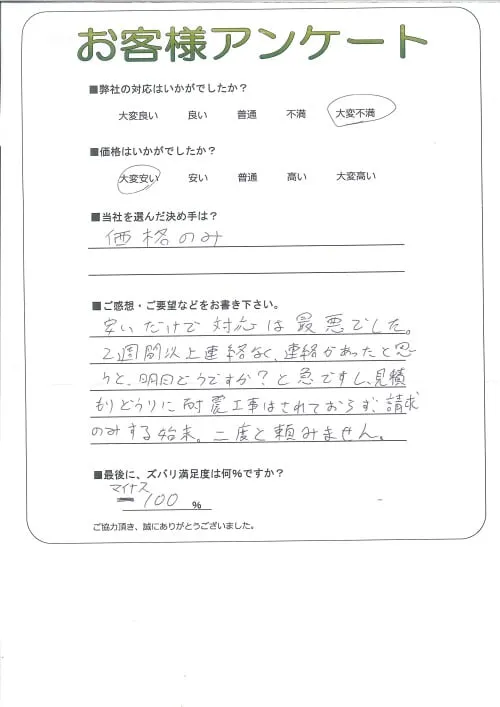 お客様アンケート
■弊社の対応はいかがでしたか？
大変良い 良い 普通 不満 大変不満
■価格はいかがでしたか？
大変安い 安い 普通 高い 大変高い
■当社を選んだ決め手は？
価格のみ
■ご感想・ご要望などをお書き下さい。
安いだけで対応は最悪でした。
2週間以上連絡なく、連絡があったと思
うと、明日どうですか？と急ですし、見積
もりどうりに耐震工事はされておらず、請求
のみする始末。二度と頼みません。
■最後に、ズバリ満足度は何％ですか？
マイナス
-100 %
ご協力頂き、誠にありがとうございました。